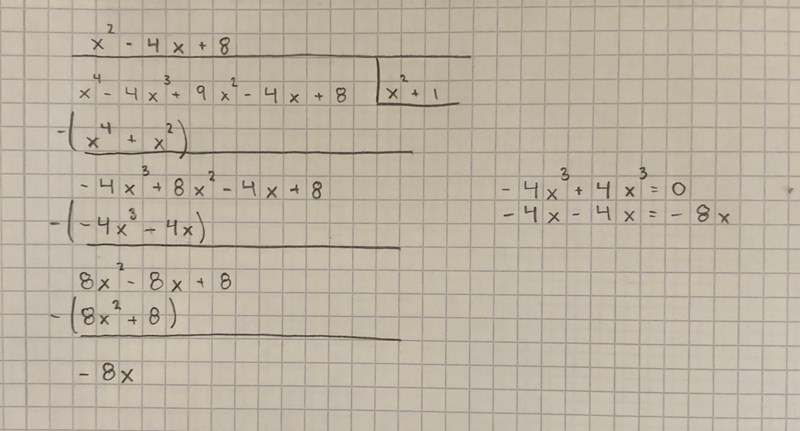 x² - 4x + 8
x⁴ - 4x³ + 9x² - 4x + 8 | x² + 1
-(x⁴ + x²)
- 4x³ + 8x² - 4x + 8
-(-4x³ - 4x)
8x² - 8x + 8
-(8x² + 8)
- 8x
- 4x³ + 4x³ = 0
- 4x - 4x = - 8x